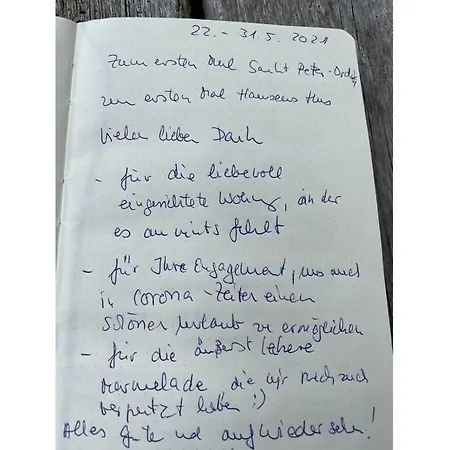 22. - 31.5. 2021
Zum ersten Mal Sankt Peter-Ording
zum ersten Mal Hausens Hus
Vielen lieben Dank
- für die liebevoll
eingerichtete Wohnung, in der
es an nichts fehlt
- für Ihre Engagement, uns auch
in Corona-Zeiten einen
schönen Urlaub zu ermöglichen
- für die äußerst leckere
Marmelade die wir
verputzt haben :)
Alles Gute und auf Wiedersehen!